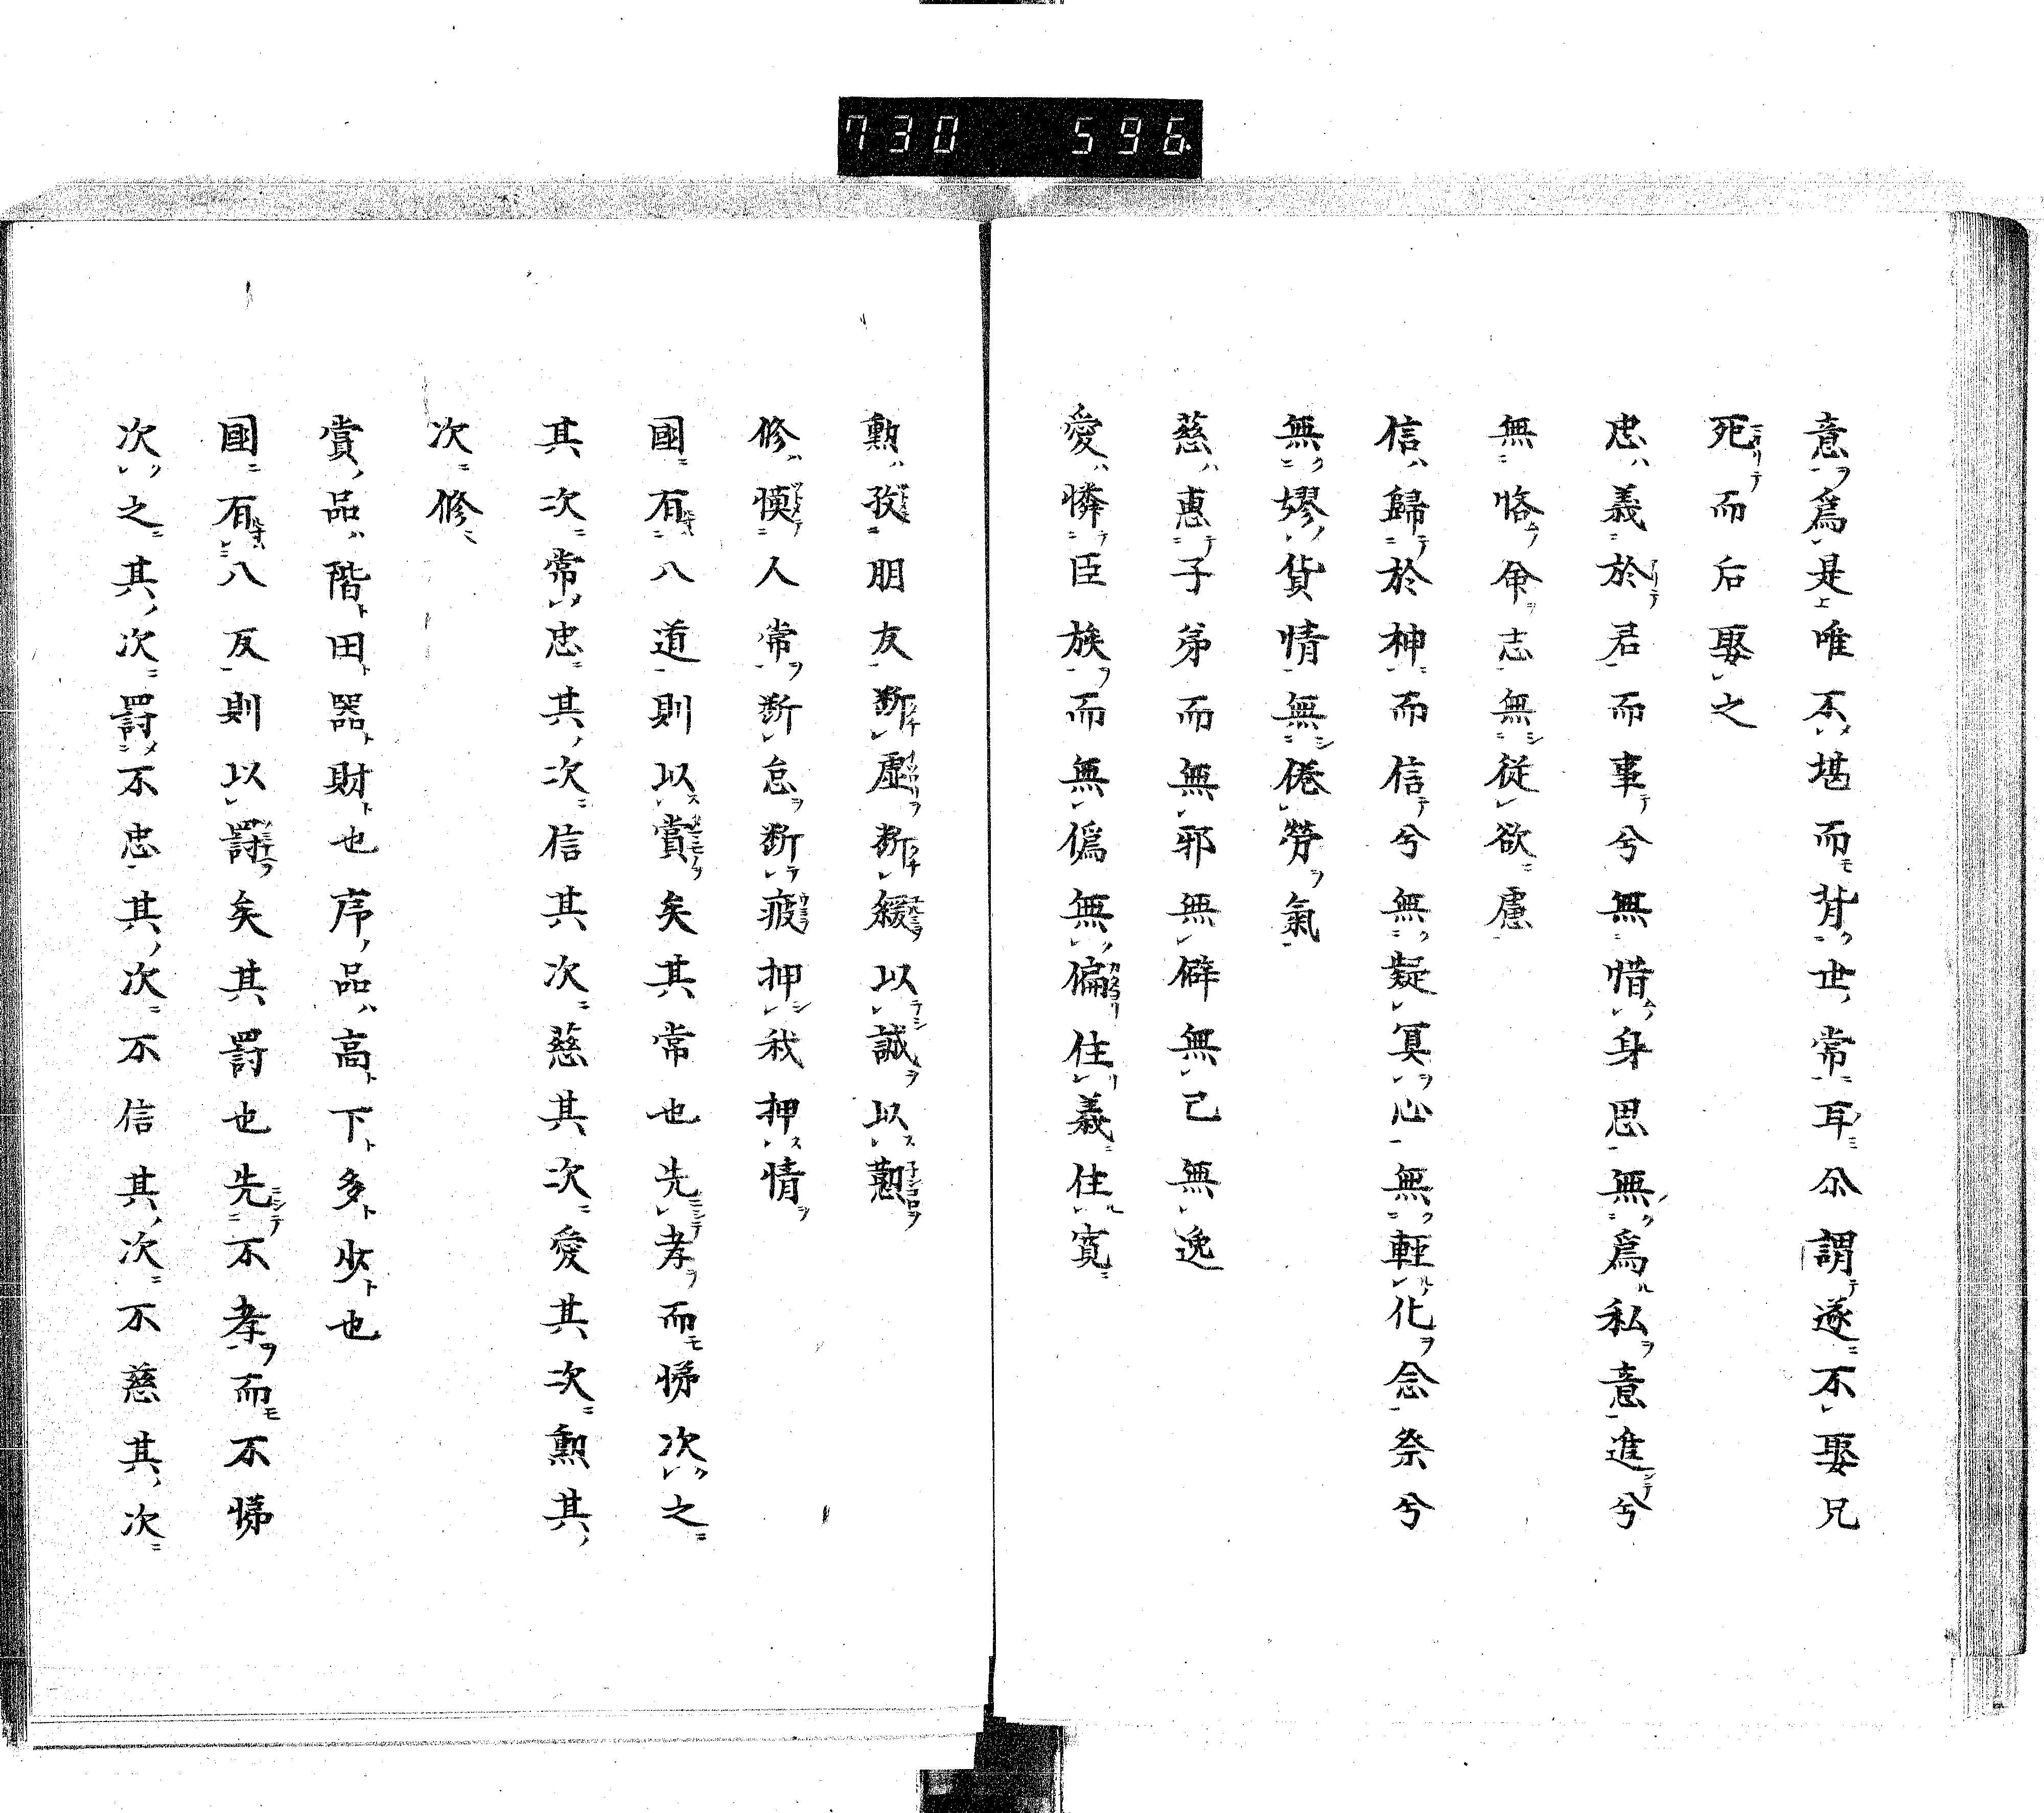 730 596
意爲是唯不堪而背世常耳尒謂遂不娶兄
死而后娶之
忠義於君而事兮無惜身思無爲私意進兮
無悋命志無從欲慮
信歸於神而信兮無疑冥心無輕化念祭兮
無嫪貨情無倦勞氣
慈惠子弟而無邪無僻無己無逸
愛憐臣族而無僞無偏住義住寛
勲孜朋友断虛断緩以誠以懃
修慔人常断怠断疲押我押情
國有八道則以賞矣其常也先孝而悌次之
其次常忠其次信其次慈其次愛其次勲其
次修
賞品階田器財也序品高下多少也
國有八反則以罸矣其罸也先不孝而不悌
次之其次罸不忠其次不信其次不慈其次